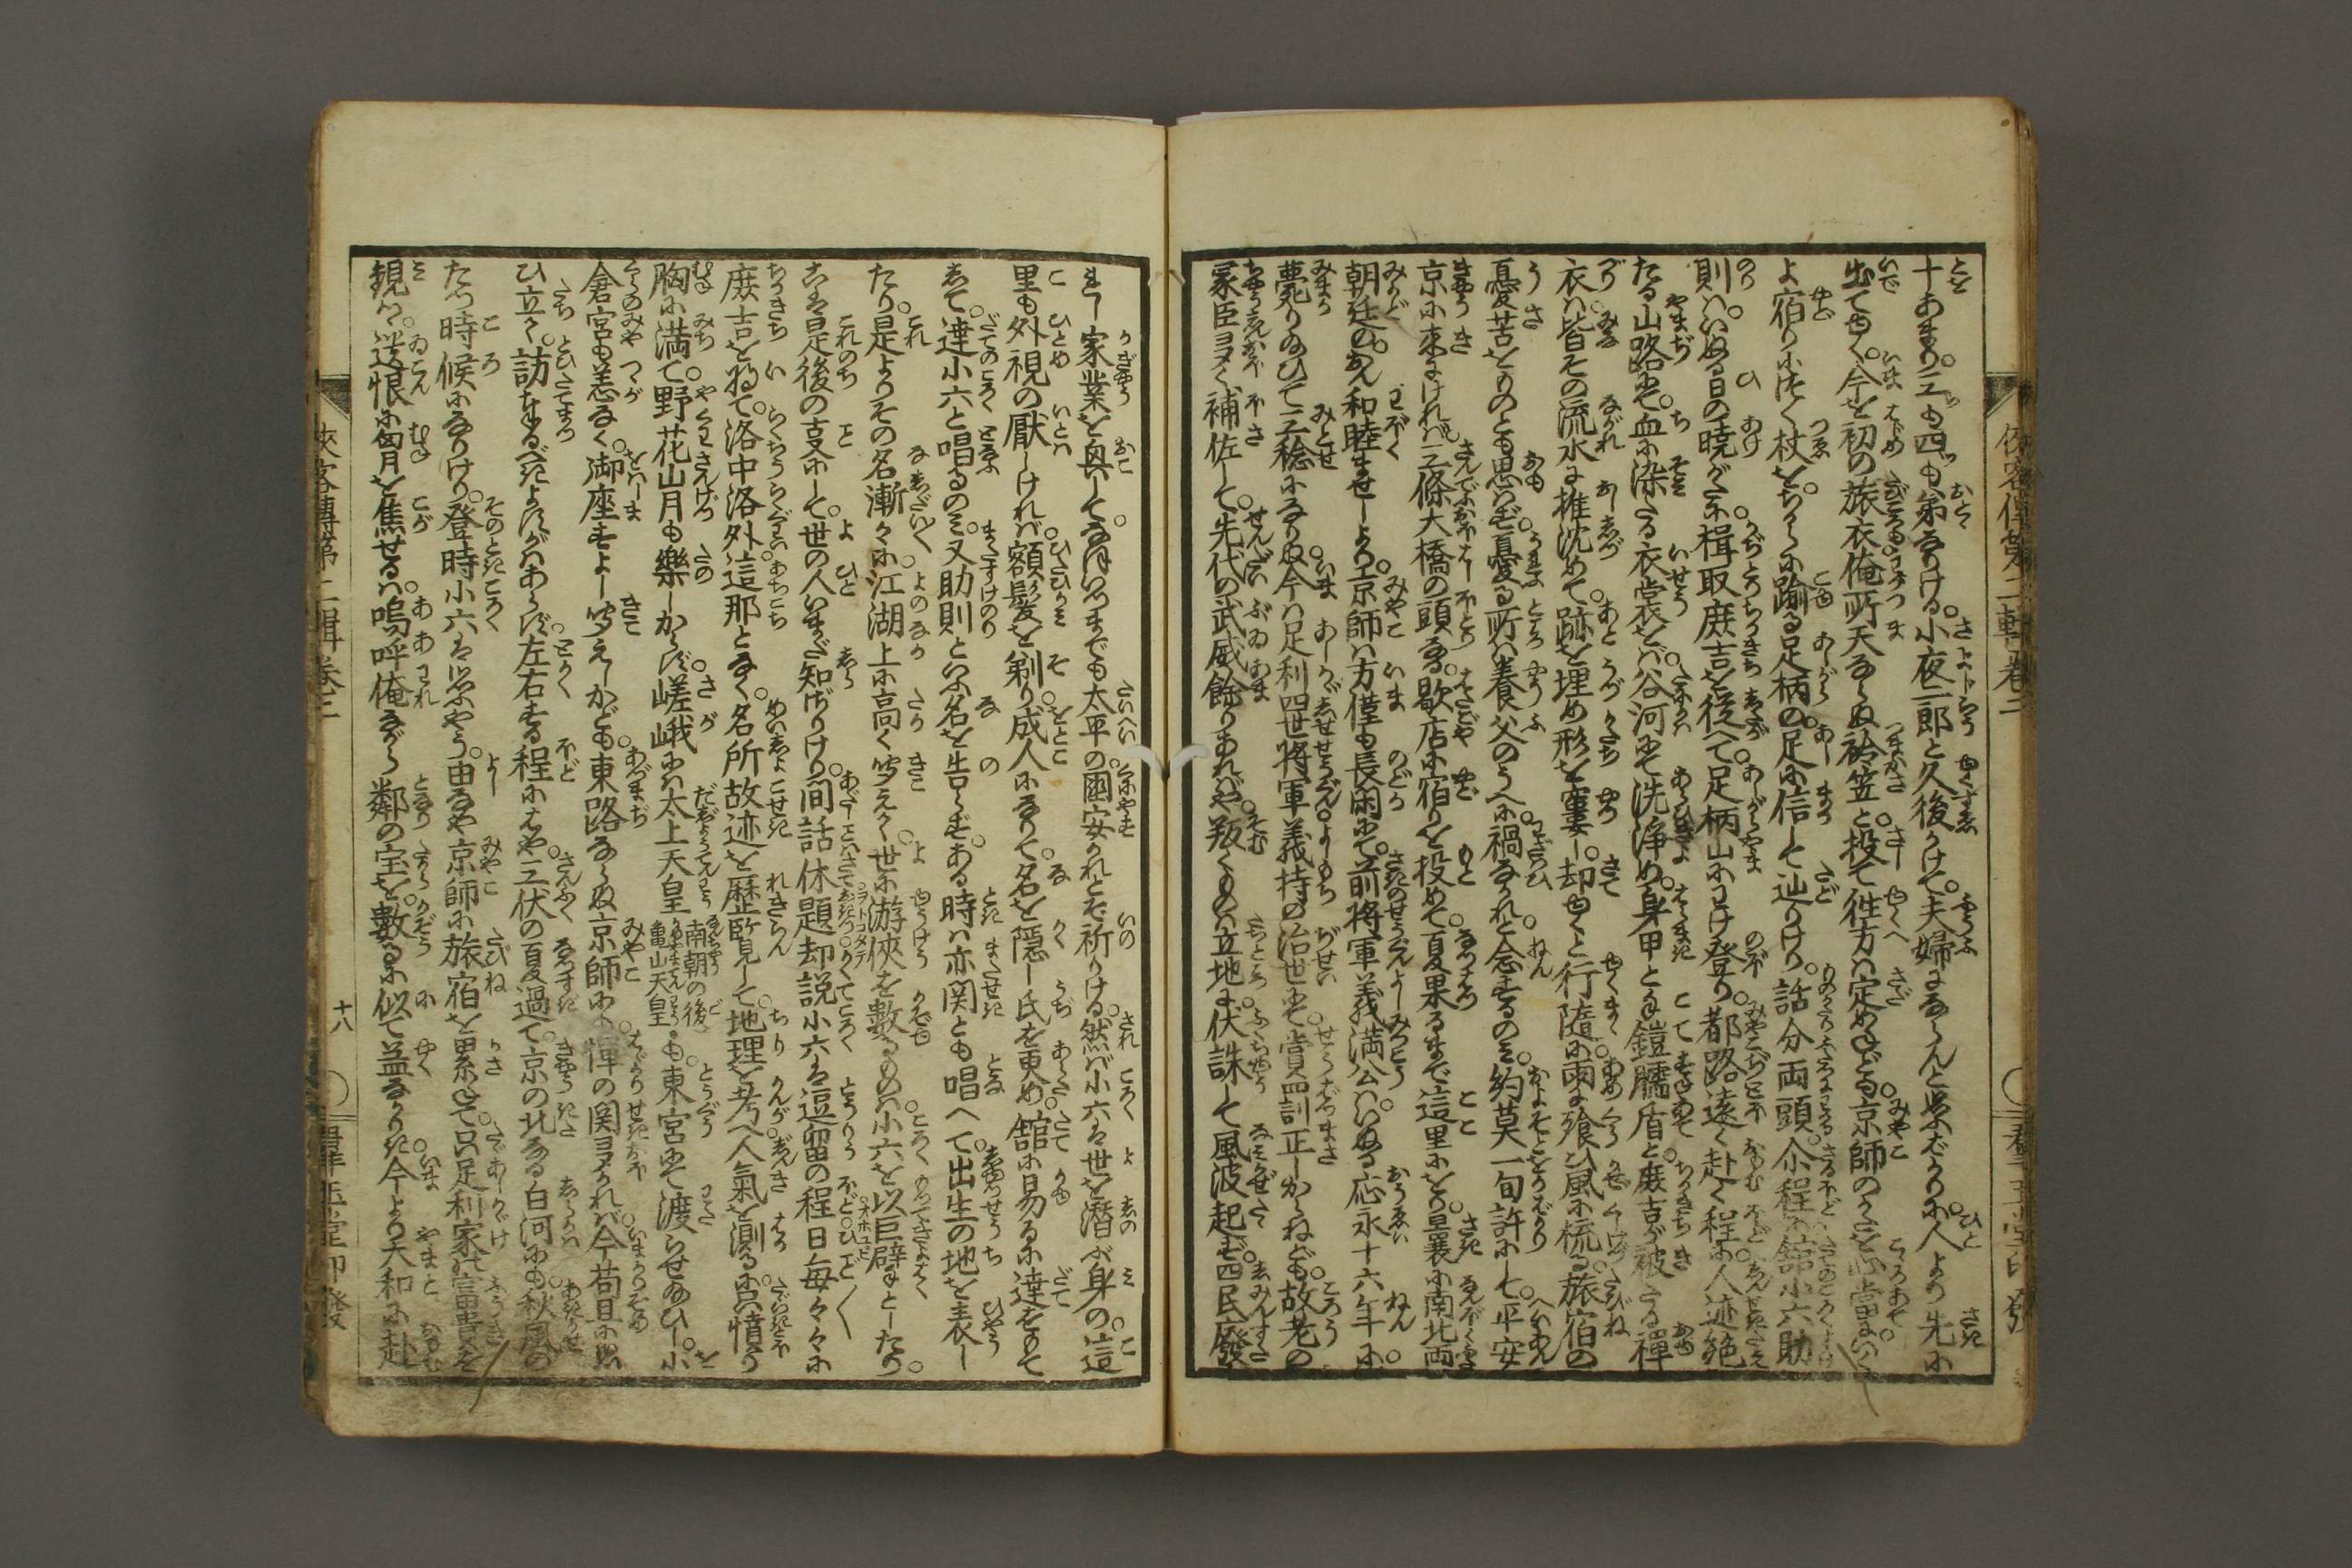 十あまり。三も四も弟なりける。小夜二郎と久後かけて。夫婦になしんと思ばかりに。人より先に
出てゆく。今を初の旅衣。俺所天ならぬ袷笠と。投て往方は定めねども。京師のかたを心當に。いく
よ宿りにつく杖を。ちからに踰る足柄の。足に信して辿りけり。話分両頭。尒程に舘小六助
則は。いぬる日の暁がたに。楫取庻吉を従へて。足柄山にわけ登り。都路遠く赴く程に。人迹絶
たる山路にて。血に染たる衣裳をば。谷河にて洗浄め。身甲とこて鎧臑盾と。庻吉が被たる襌
衣は。皆その流水に推沈めて。跡を埋め形を窶し。却ゆく〳〵と行随に。雨に飧ひ風に梳る。旅宿の
憂苦をものとも思はず。憂る所は養父のうへに。禍なかれと念ずるのみ。約莫一旬許にして。平安
京に来にければ。三條大橋の頭なる。歇店に宿りを投めて。夏果るまで這里にをり。曩に南北両
朝廷の。おん和睦ませしより。京師は方僅も長閑にて。前将軍義満公は。いぬる応永十六年に。
薨り給ひて三稔になりぬ。今は足利四世将軍。義持の治世にて。賞罰訓正しからねども。故老の
家臣ヨク補佐して。先代の武威餘りあれば。叛くものは立地に伏誅して。風波起ず。四民廢
れし家業を興して。なほいつまでも太平の。國安かれとぞ祈りける。然ば小六は世を潜ぶ身の。這
里も外視の厭しければ。額髪を剃り成人になりて。名を隠し氏を更め。舘に易るに達をもて
して。達小六と唱るのみ。又助則といふ名を告らず。ある時は亦関とも唱へて。出生の地を表し
たり。是よりその名漸々に。江湖上に高く聞えて。世に游侠を數るものは。小六を以巨擘とし
たり。こは是後の事にして。世の人いまだ知ざりけり。間話休題。却説小六は逗留の程。日毎々々に
庻吉を将て。洛中洛外。這那となく。名所故迹を歴覧して。地理を考へ人氣を測るに。只憤り
胸に満て。野花山月も樂しからず。嵯峨には太上天皇 南朝の後亀山天皇 も。東宮にて渡らせ給ひし。小
倉宮も恙なく。御座すよし聞えしかども。東路ならぬ京師にも。憚の関ヨクければ。今苟且に思
ひ立て。訪まゐるべきよすがはあらず。左右する程にはや。三伏の夏過て。京の北なる白河にも。秋風の
たつ時候になりけり。登時小六は思ふやう。由なや京師に旅宿を累ねて。只足利家の富貴を
覩つゝ。遺恨に匈月を焦せるは。嗚呼俺ながら鄰の宝を。數るに似て益なかりき。今より大和に赴
侠客傳第二輯巻三
十八